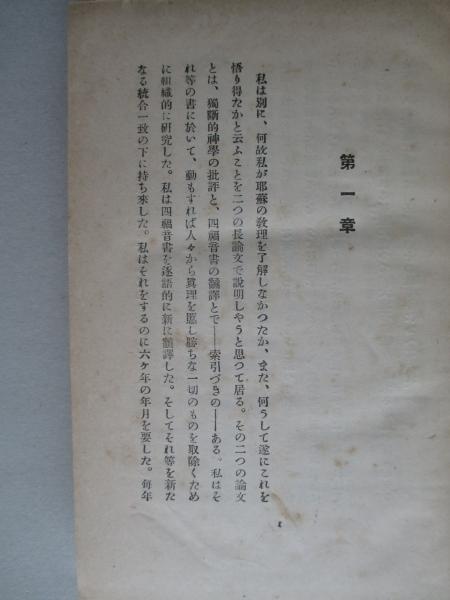 第一章
私は別に、何故私が耶蘇の敎理を了解しなかつたか、また、何うして遂にこれを
悟り得たかと云ふことを二つの長論文で說明しやうと思つて居る。その二つの論文
とは、獨斷的神學の批評と、四福音書の飜譯とで――索引づきの――ある。私はそ
れ等の書に於いて、動もすれば人々から眞理を匿し勝ちな一切のものを取除くため
に組織的に硏究した。私は四福音書を逐語的に新に飜譯した。そしてそれ等を新た
なる統合一致の下に持ち來した。私はそれをするのに六ケ年の年月を要した。每年